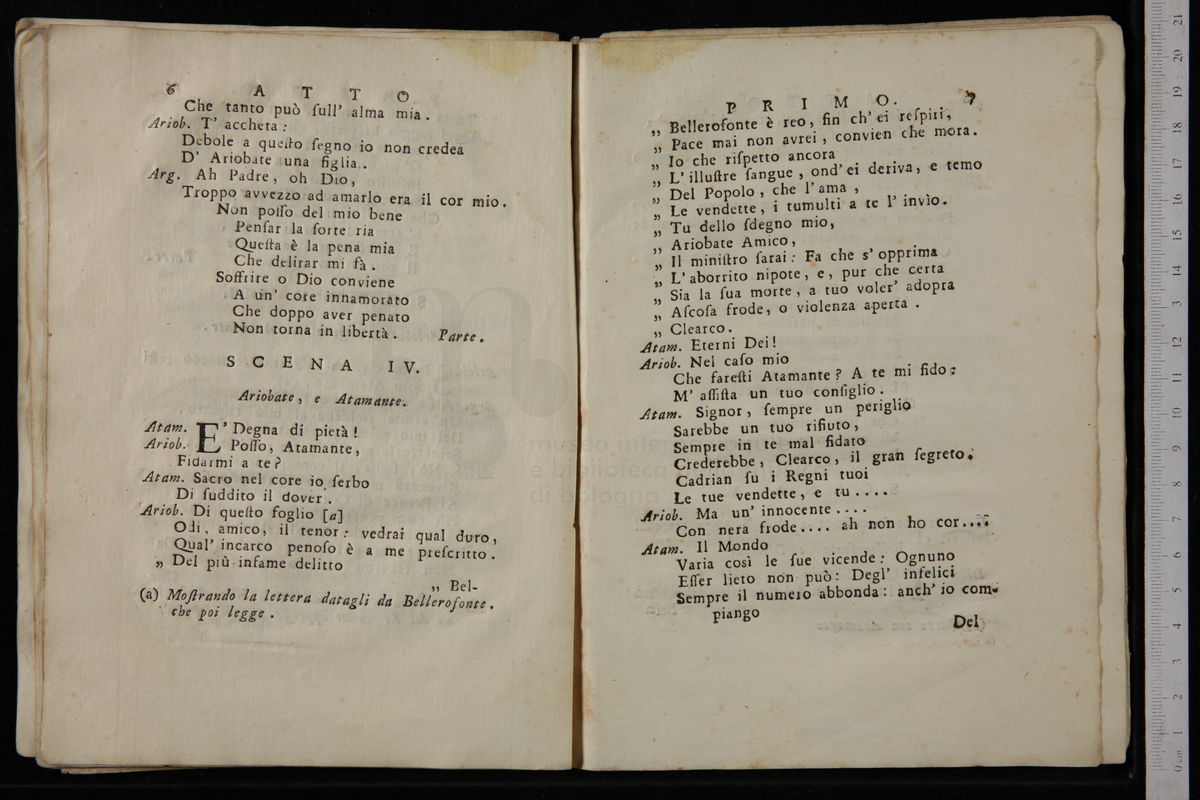 6 ATTO
Che tanto può ſull' alma mia.
Ariob. T' accheta:
Debole a queſto ſegno io non credea
D' Ariobate una figlia.
Arg. Ah Padre, oh Dio,
Troppo avvezzo ad amarlo era il cor mio.
Non poſſo del mio bene
Penſar la ſorte ria
Queſta è la pena mia
Che delirar mi fà.
Soffrire o Dio conviene
A un' core innamorato
Che doppo aver penato
Non torna in libertà. Parte.
SCENA IV.
Ariobate, e Atamante.
Atam. E' Degna di pietà!
Ariob. Poſſo, Atamante,
Fidarmi a te?
Atam. Sacro nel core io ſerbo
Di ſuddito il dover.
Ariob. Di queſto foglio [a]
Odi, amico, il tenor: vedrai qual duro,
Qual' incarco penoſo è a me preſcritto.
„ Del più infame delitto
„ Bel-
(a) Moſtrando la lettera datagli da Bellerofonte.
che poi legge.
PRIMO. 7
„ Bellerofonte è reo, fin ch' ei reſpiri,
„ Pace mai non avrei, convien che mora.
„ Io che riſpetto ancora
„ L' illuſtre ſangue, ond' ei deriva, e temo
„ Del Popolo, che l' ama,
„ Le vendette, i tumulti a te l' invìo.
„ Tu dello ſdegno mio,
„ Ariobate Amico,
„ Il miniſtro ſarai: Fa che s' opprima
„ L' aborrito nipote, e, pur che certa
„ Sia la ſua morte, a tuo voler' adopra
„ Aſcoſa frode, o violenza aperta.
„ Clearco.
Atam. Eterni Dei!
Ariob. Nel caſo mio
Che fareſti Atamante? A te mi fido:
M' aſſiſta un tuo conſiglio.
Atam. Signor, ſempre un periglio
Sarebbe un tuo rifiuto,
Sempre in te mal fidato
Crederebbe, Clearco, il gran ſegreto.
Cadrian ſu i Regni tuoi
Le tue vendette, e tu....
Ariob. Ma un' innocente....
Con nera frode.... ah non ho cor....
Atam. Il Mondo
Varia così le ſue vicende: Ognuno
Eſſer lieto non può: Degl' infelici
Sempre il numero abbonda: anch' io com-
piango
Del